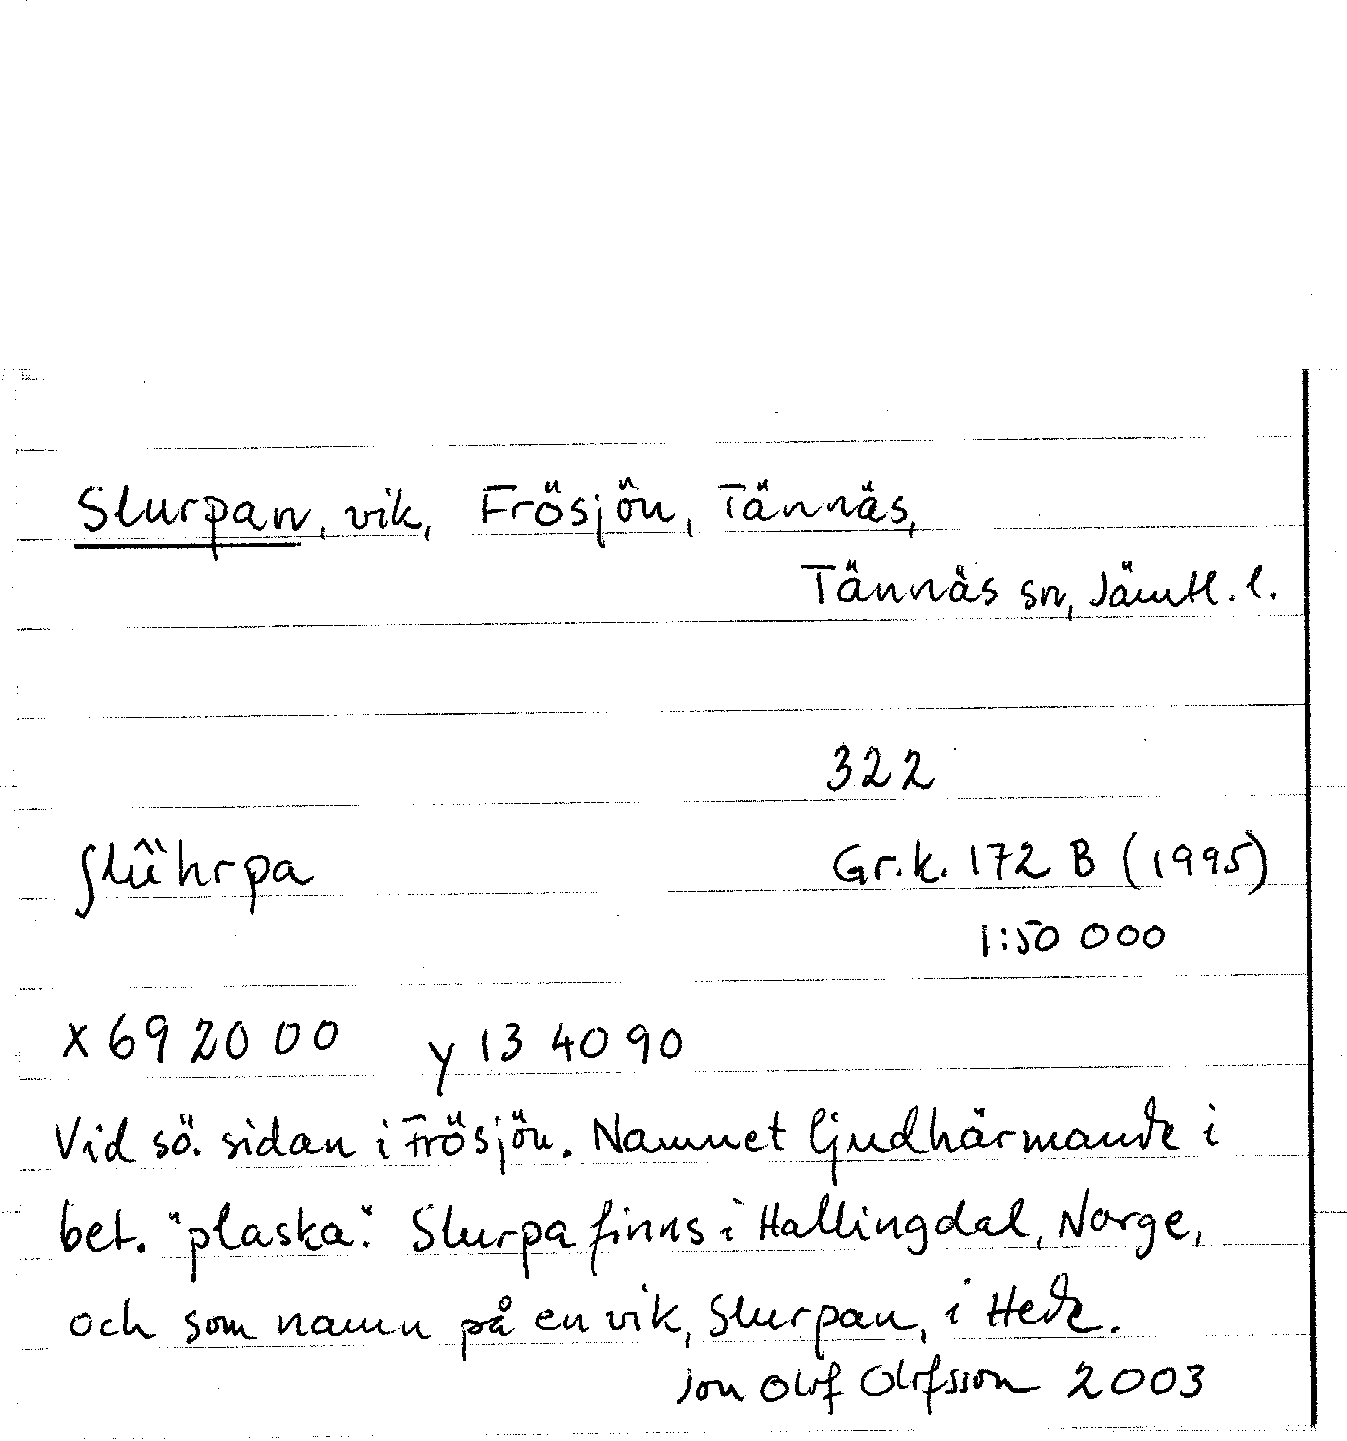 Slurpan, vik, Frösjön, Tännäs,
Tännäs sn, Jämtl. l.
322
ʃlûhrpa
Gr.k. 172 B (1995)
1:50 000
x 69 20 00 y 13 40 90
Vid sö. sidan i Frösjön. Namnet ljudhärmande i
bet. "plaska". Slurpa finns i Hallingdal, Norge,
och som namn på en vik, Slurpan, i Hede.
Jon Olof Olofsson 2003